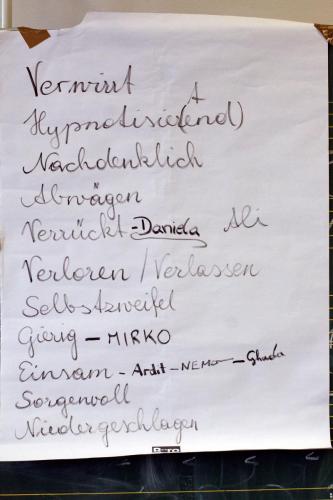 Verwirrt
Hypnotisier(end)
Nachdenklich
Abwägen
Verrückt - Daniela Ali
Verloren / Verlassen
Selbstzweifel
Gierig - MIRKO
Einsam - Ardit - NEMO -
Sorgenvoll
Niedergeschlagen